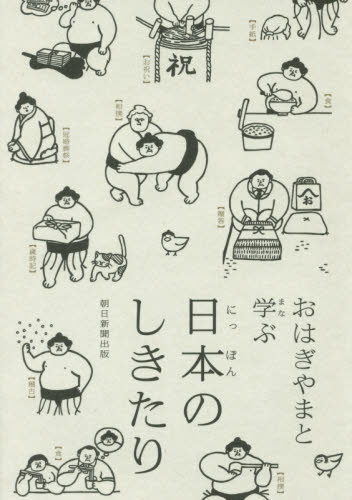 おはぎやまと
学ぶ
まな
日本の
にっぽん
しきたり
朝日新聞出版
祝
【お祝い】
【手紙】
【食】
【相撲】
【冠婚葬祭】
【贈答】
お
【歳時記】
【縁起】
【食】
【相撲】